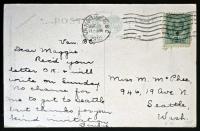 POST
Van. BC.
Dear Maggie
Recd your
letter O.K. & will
write on Sunday
No chance for
me to get to Seattle
but thanks for
kind invite
Miss M. McPhee
946, 19 Ave N.
Seattle,
Wash.